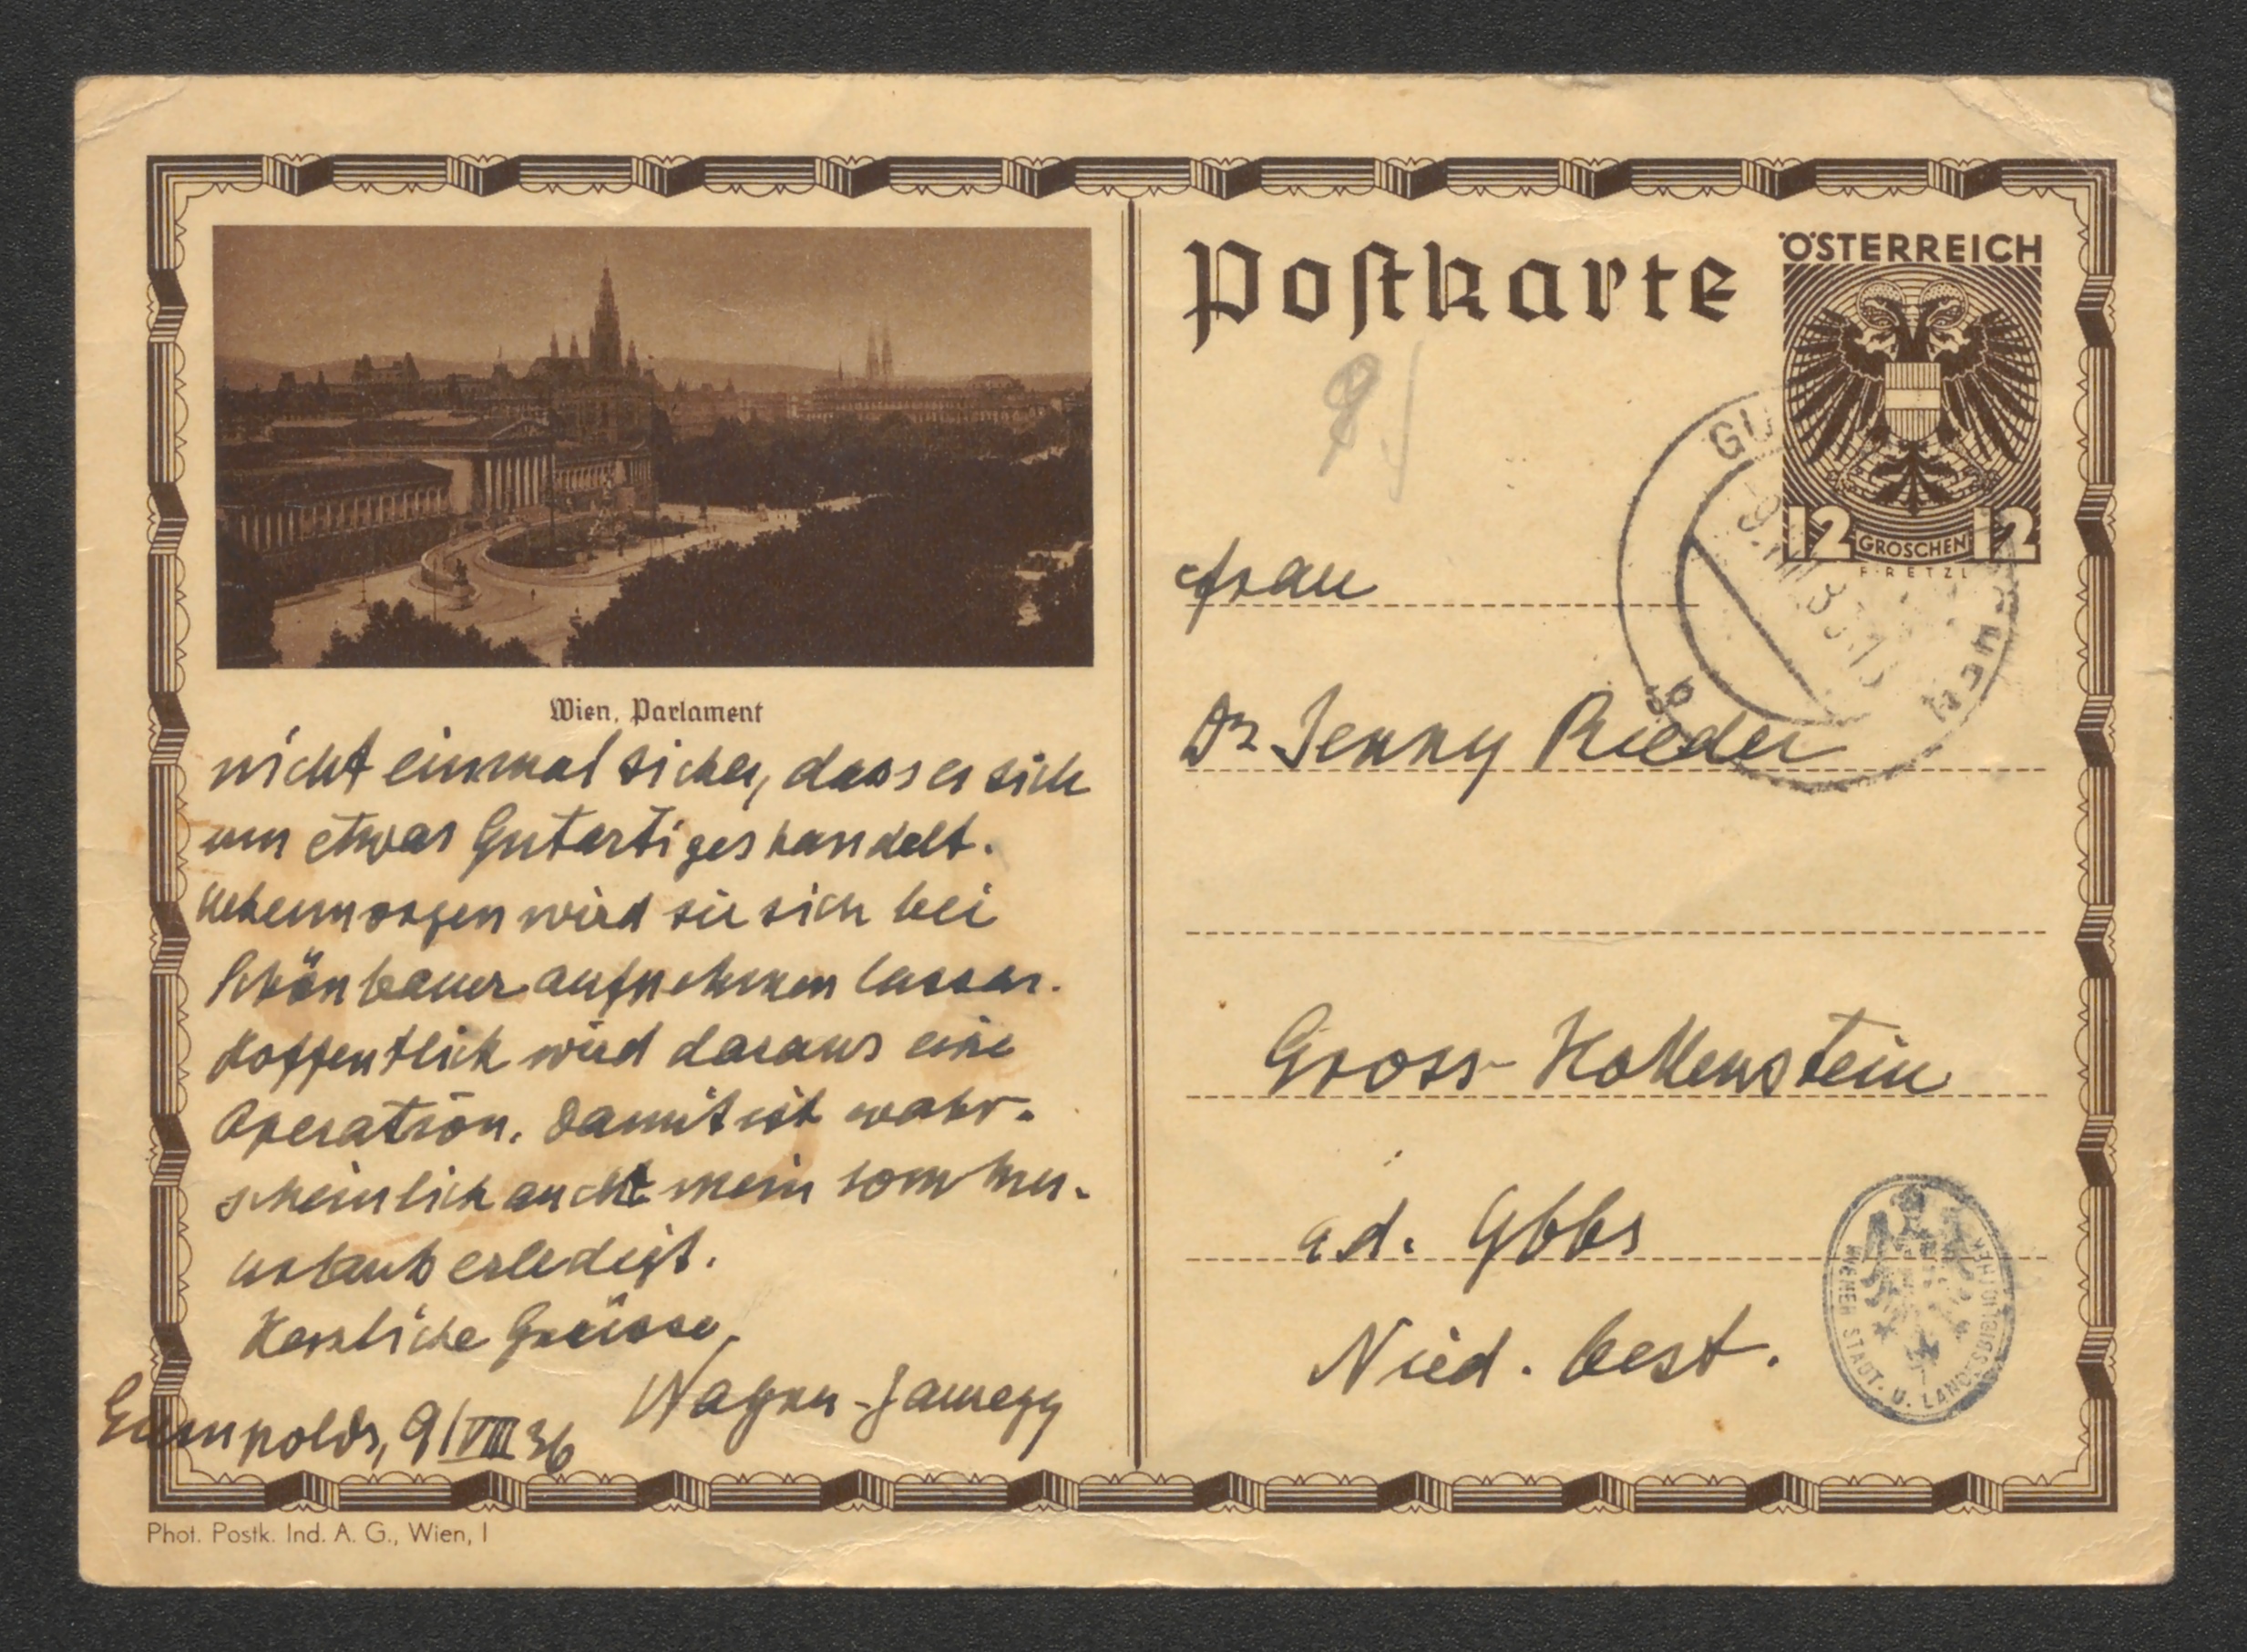 Wien, Parlament
nicht einmal sicher, dass es sich
um etwas Gutartiges handelt.
Uebermorgen wird sie sich bei
Schönbauer aufnehmen lassen.
Hoffentlich wird daraus eine
Operation. Damit ist wahr-
scheinlich auch mein Sommer-
urlaub erledigt.
Herzliche Grüsse,
Wagner-Jauregg
Gumpolds, 9/VIII 36
Phot. Postk. Ind. A. G., Wien, I
Postkarte
ÖSTERREICH
12 GROSCHEN 12
F·RETZL
GU
9.VIII.36
Frau
Dr Jenny Rieder
Gross-Hollenstein
a d. Ybbs
Nied. Oest.
WIENER STADT. U. LANDESBIBLIOTHEK